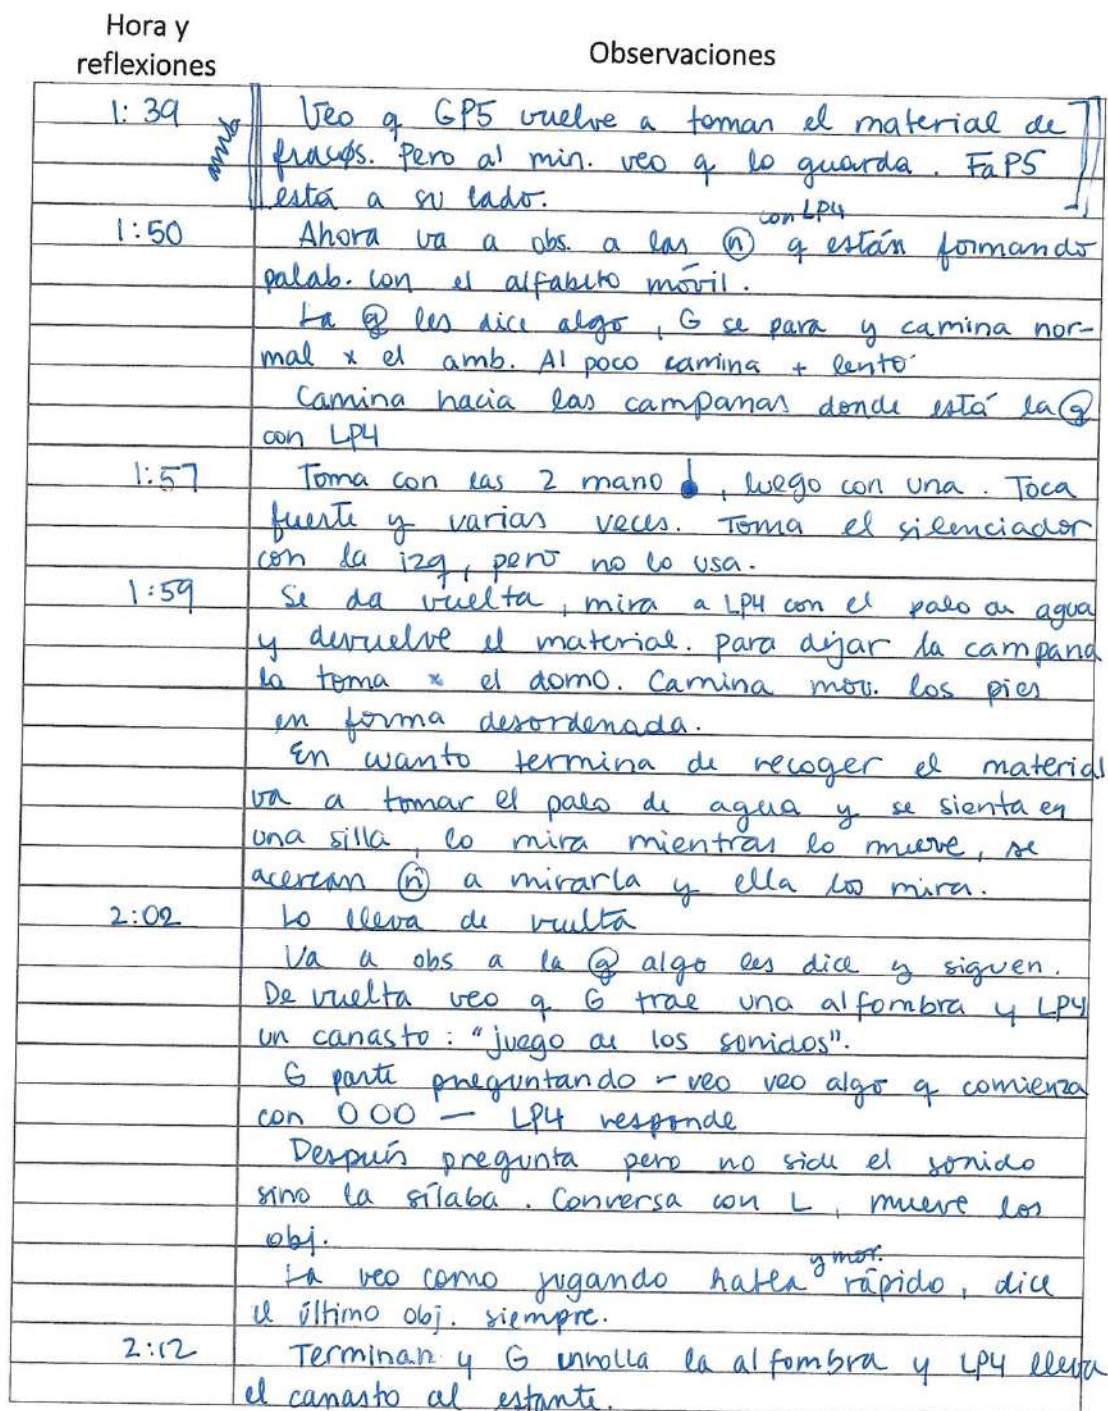 Hora y
reflexiones
Observaciones
1:39 Veo q GP5 vuelve a tomar el material de
amb fracos. Pero al min. veo q lo guarda. FaP5
está a su lado.
con LP4
1:50 Ahora va a obs. a las ⓝ q están formando
palab. con el alfabeto móvil.
La ⓖ les dice algo, G se para y camina nor-
mal x el amb. Al poco camina + lento
Camina hacia las campanas donde está la ⓖ
con LP4
1:57 Toma con las 2 mano, luego con una. Toca
fuerte y varias veces. Toma el silenciador
con la izq, pero no lo usa.
1:59 Se da vuelta, mira a LP4 con el palo de agua
y devuelve el material. Para dejar la campana
la toma x el domo. Camina mov. los pies
en forma desordenada.
En cuanto termina de recoger el material
va a tomar el palo de agua y se sienta en
una silla, lo mira mientras lo mueve, se
acercan ⓝ a mirarla y ella los mira.
2:02 Lo lleva de vuelta
Va a obs a la ⓖ algo les dice y siguen.
De vuelta veo q G trae una alfombra y LP4
un canasto: "juego de los sonidos".
G parte preguntando - veo veo algo q comienza
con OOO — LP4 responde
Después pregunta pero no dice el sonido
sino la sílaba. Conversa con L, mueve los
obj.
y mov.
La veo como jugando habla rápido, dice
el último obj. siempre.
2:12 Terminan y G enrolla la alfombra y LP4 lleva
el canasto al estante.